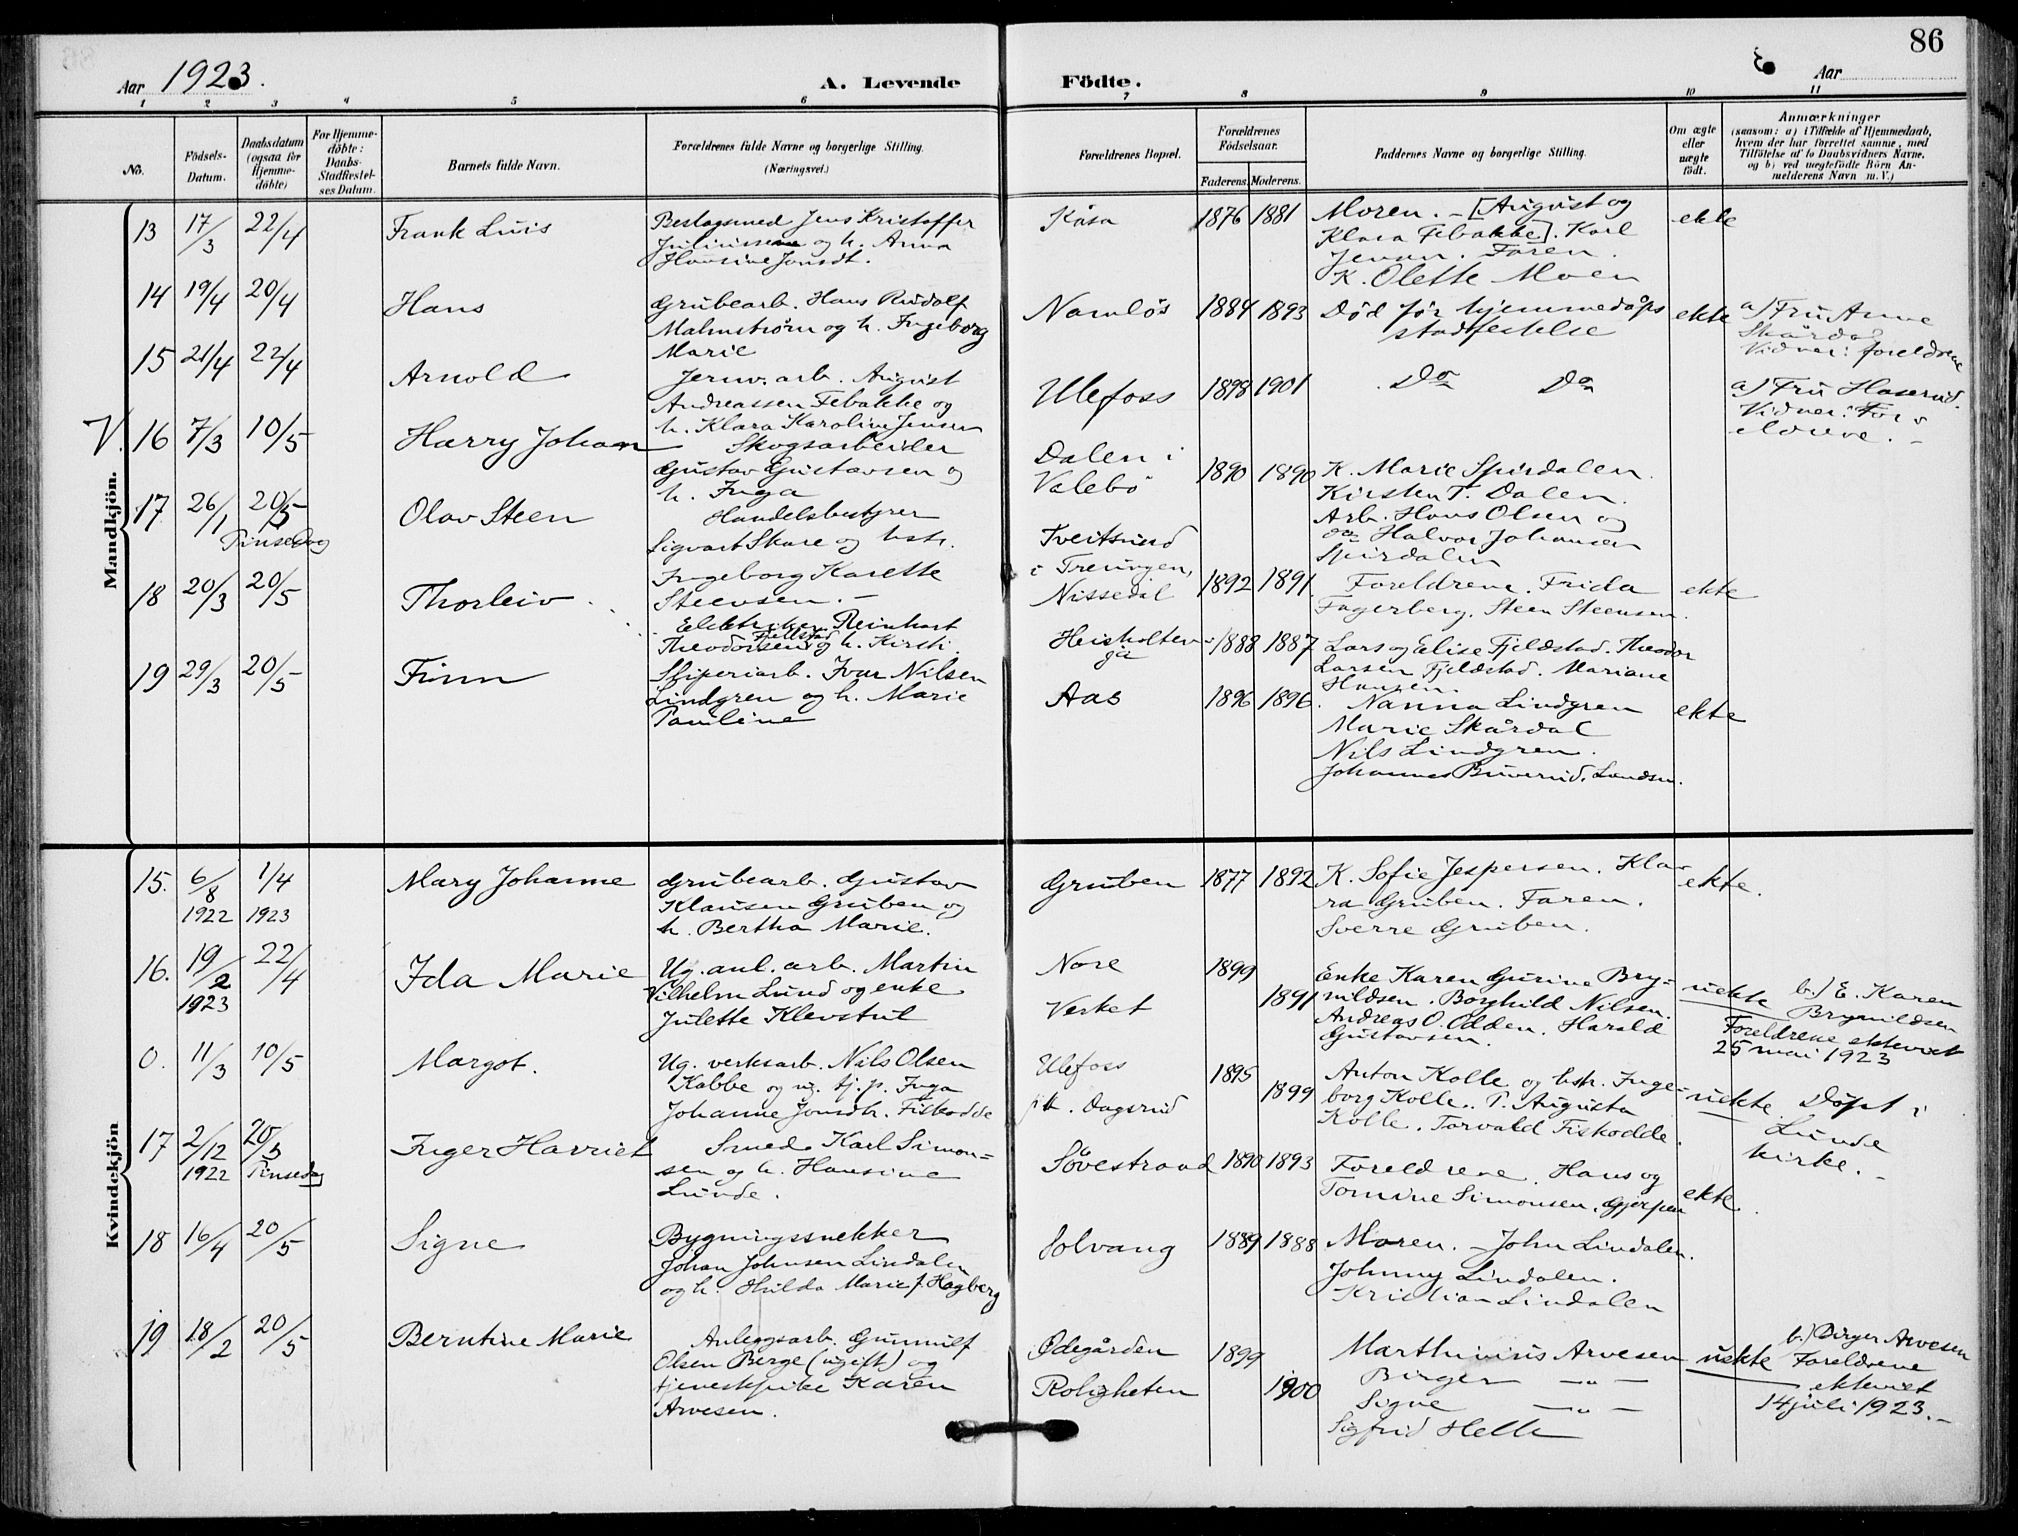 86
Aar 1923.
A. Levende Födte.
Aar
1 2 3 4 5 6 7 8 9 10 11
No.
Födsels-Datum.
Daabsdatum (ogsaa for Hjemme-döbte)
For Hjemme-döbte: Daabs-Stadfæstel-ses Datum.
Barnets fulde Navn.
Forældrenes fulde Navne og borgerlige Stilling.
(Næringsvei.)
Forældrenes Bopæl.
Forældrenes Födselsaar.
Faderens. Moderens.
Faddernes Navne og borgerlige Stilling.
Om ægte eller uægte födt.
Anmærkninger
(saasom: a) i Tilfælde af Hjemmedaab,
hvem der har forrettet samme, med
Tilföielse af to Daabsvidners Navne,
og b) ved uægtefödte Börn An-
melderens Navn m. V.)
Mandkjön.
13 17/3 22/4 Frank Luis
Beslagsmed Jens Kristoffer
Juliussen og h. Anna
Hansine Jonsdt.
Kåsa 1876 1881
Moren. – [August og
Klara Febakke]. Karl
Jensen. Faren.
K. Olette Moen
ekte
14 19/4 20/4 Hans
Grubearb. Hans Rudolf
Malmstrøm og h. Ingeborg
Marie
Namløs 1884 1893
Død før hjemmedåps
stadfestelse
ekte
a) Fru Anne
Skårdal
Vidner: foreldrene
15 21/4 22/4 Arnold
Jernv. arb. August
Andreassen Febakke og
h. Klara Karoline Jensen
Ulefoss 1898 1901
Do Do
a) Fru Haserud.
Vidner: For-
eldrene. –
V. 16 7/3 10/5 Harry Johan
Skogsarbeider
Gustav Gustavsen og
h. Inga
Dalen i
Valebø
1890 1890
K. Marie Spirdalen.
Kirsten T. Dalen.
Arb. Hans Olsen og
do Halvor Johansen
Spirdalen
17 26/1 20/5 Olav Steen
Pinsedag
Handelsbestyrer
Sigvart Skare og hstr.
Ingeborg Karette
Steensen. –
Tveitsund
i Treungen,
Nissedal
1892 1891
Foreldrene. Frida
Fagerberg. Steen Steensen.
ekte
18 20/3 20/5 Thorleiv
Elektriker Reinhart
Theodorsen Fjellstad og h. Kirsti
Heisholten
1888 1887
Lars og Elise Fjeldstad. Theodor
Larsen Fjeldstad. Mariane
Hansen.
19 29/3 20/5 Finn
Sliperiarb. Ivar Nilsen
Lindgren og h. Marie
Pauline
Aas 1896 1896.
Nanna Lindgren
Marie Skårdal
Nils Lindgren.
Johannes Buverud. Lundsn.
ekte
Kvindekjön
15. 6/8 1922 1/4 1923 Mary Johanne
Grubearb. Gustav
Klausen Gruben og
h. Bertha Marie.
Gruben 1877 1892
K. Sofie Jespersen. Kla-
ra Gruben. Faren.
Sverre Gruben.
ekte.
16. 19/2 1923 22/4 Ida Marie
Ug. anl. arb. Martin
Vilhelm Lund og enke
Julette Klevstul
Nore 1899
Verket 1891
Enke Karen Gurine Bry-
nildsen. Borghild Nilsen.
Andreas O. Odden. Harald
Gustavsen.
uekte
b.) E. Karen
Brynildsen
Foreldrene ekteviet
25 mai 1923
0. 11/3 10/5 Margot.
Ug. verksarb. Nils Olsen
Kabbe og ug. tj. p. Inga
Johanne Jonsdt. Fiskodde
Ulefoss 1895
pt. Dagsrud 1899
Anton Kolle og hstr. Inge-
borg Kolle. P. Augusta
Kolle. Torvald Fiskodde.
uekte
Døpt i
Lunde
kirke. –
17 2/12 1922 20/5 Pinsedag Inger Harriet
Smed Karl Simon-
sen og h. Hansine
Lunde.
Søvestrand 1890 1893
Foreldrene. Hans og
Tomine Simonsen, Gjerpen
ekte.
18 16/4 20/5 Signe
Bygningssnekker
Johan Johnsen Lindalen
og h. Hilda Marie f. Hagberg
Solvang 1889 1888
Moren. – John Lindalen.
Johnny Lindalen.
Kristian Lindalen
19 18/2 20/5 Berntine Marie
Anleggsarb. Gunnulf
Olsen Berge (ugift) og
tjenestepike Karen
Arvesen.
Ødegården 1899
Roligheten 1900
Marthinius Arvesen
Birger – " –
Signe – " –
Sigfrid Helle
uekte
b.) Birger Arvesen
Foreldrene
ekteviet
14 juli 1923. –